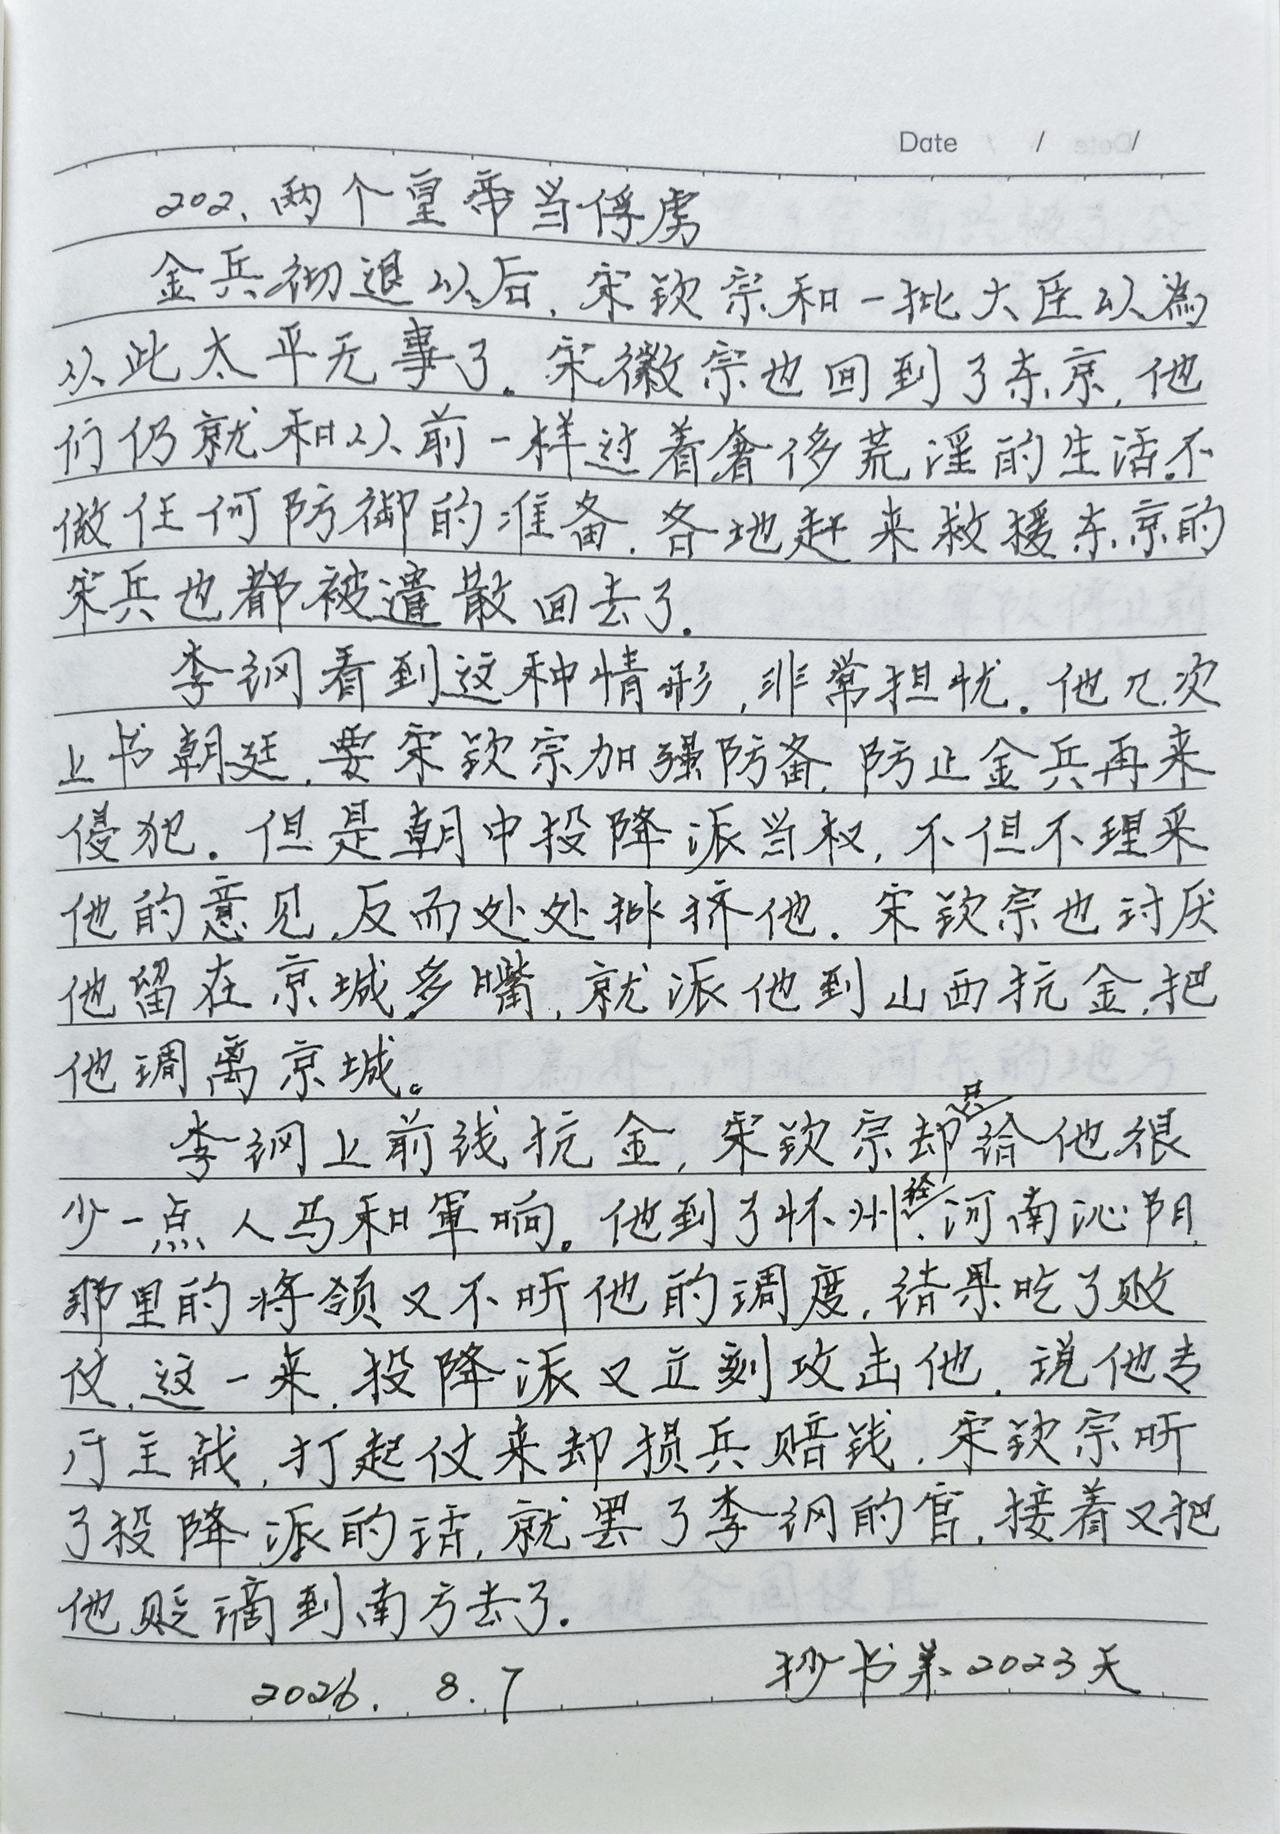 Date / /
202、两个皇帝当俘虏
金兵彻退以后，宋钦宗和一批大臣以為
从此太平无事了。宋徽宗也回到了东京，他
们仍就和以前一样过着奢侈荒淫的生活。不
做任何防御的准备，各地赶来救援东京的
宋兵也都被遣散回去了。
李纲看到这种情形，非常担忧。他几次
上书朝廷，要宋钦宗加强防备，防止金兵再来
侵犯。但是朝中投降派当权，不但不理采
他的意见，反而处处排挤他。宋钦宗也讨厌
他留在京城多嘴，就派他到山西抗金，把
他调离京城。
李纲上前线抗金，宋钦宗却只给他很
少一点人马和軍响。他到了怀州，经河南沁阴，
那里的将领又不听他的调度，结果吃了败
仗，这一来，投降派又立刻攻击他，说他专
于主战，打起仗来却损兵赔钱，宋钦宗听
了投降派的话，就罢了李纲的官，接着又把
他贬谪到南方去了。
2026. 8.7 抄书第2023天